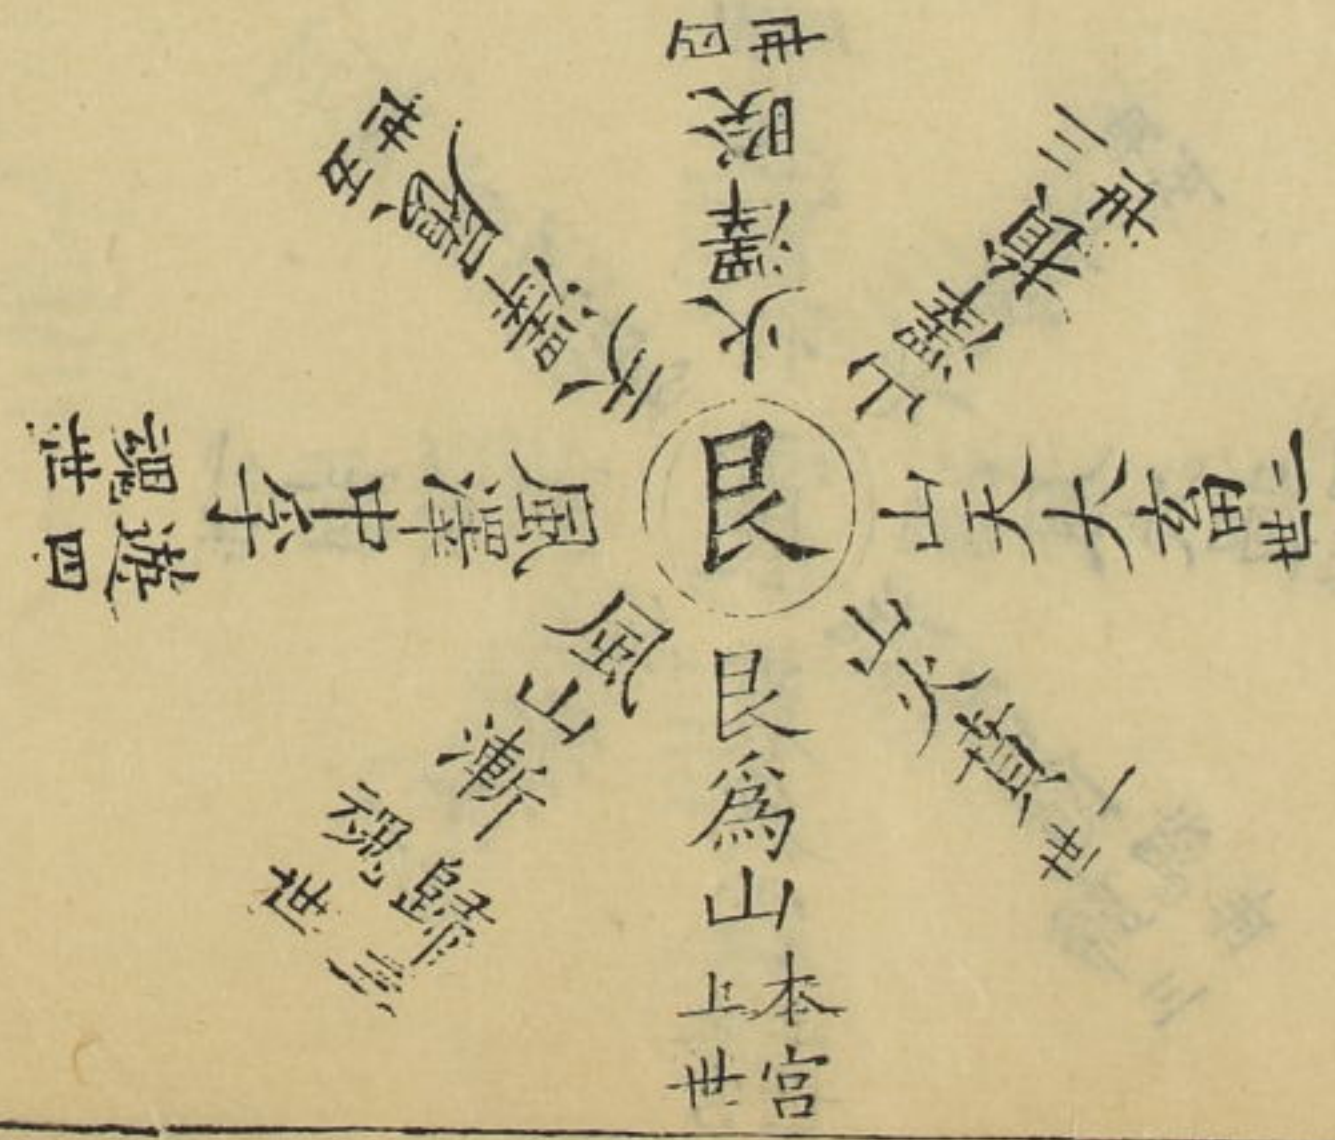 艮
艮爲山 本宮上世
山火賁 一世
山天大畜 二世
山澤損 三世
火澤睽 四世
天澤履 五世
風澤中孚 遊魂四世
風山漸 歸魂三世